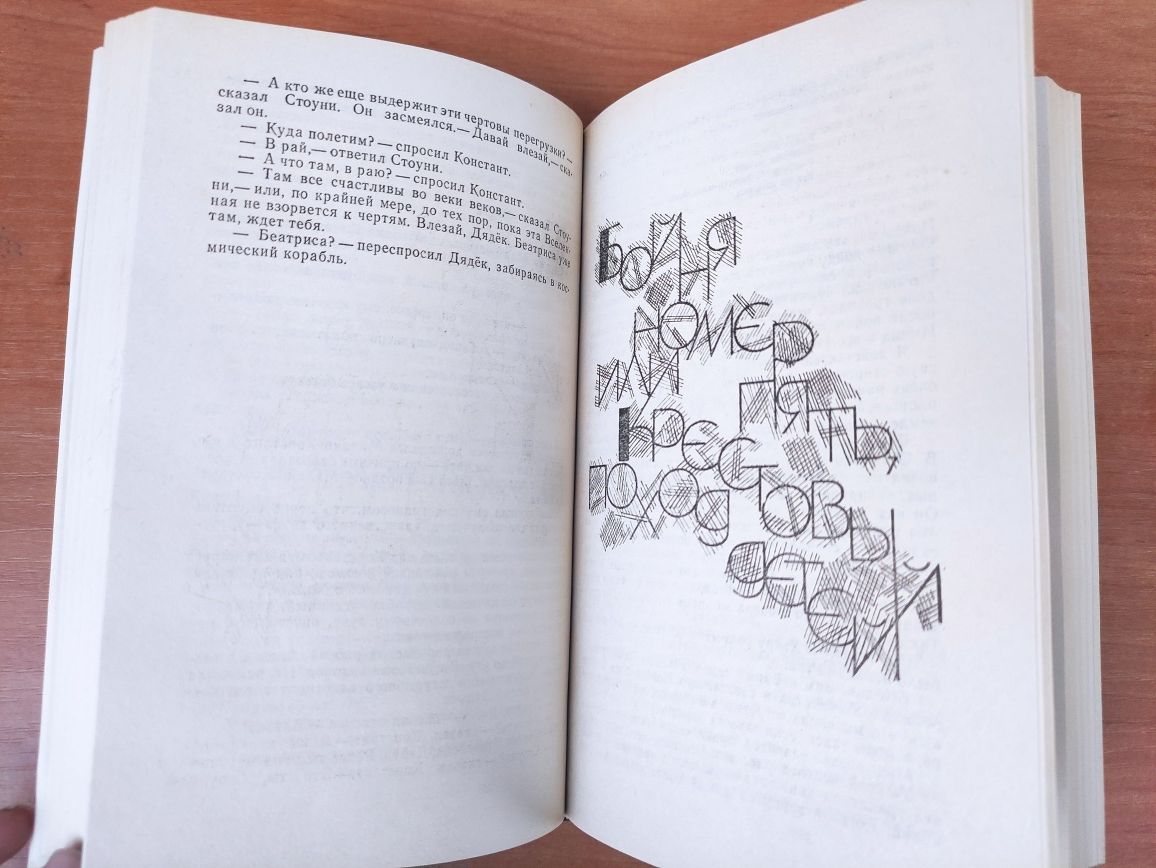 — А кто же еще выдержит эти чертовы перегрузки? —
сказал Стоуни. Он засмеялся.— Давай влезай,— ска-
зал он.
— Куда полетим? — спросил Констант.
— В рай,— ответил Стоуни.
— А что там, в раю? — спросил Констант.
— Там все счастливы во веки веков,— сказал Стоу-
ни,— или, по крайней мере, до тех пор, пока эта Вселен-
ная не взорвется к чертям. Влезай, Дядёк. Беатриса уже
там, ждет тебя.
— Беатриса? — переспросил Дядёк, забираясь в кос-
мический корабль.
Бойня
номер
пять,
или
Крестовый
поход
детей